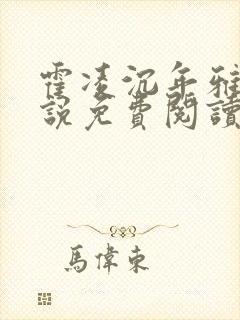 霍凌沉年雅
說免費閱讀
馬偉東